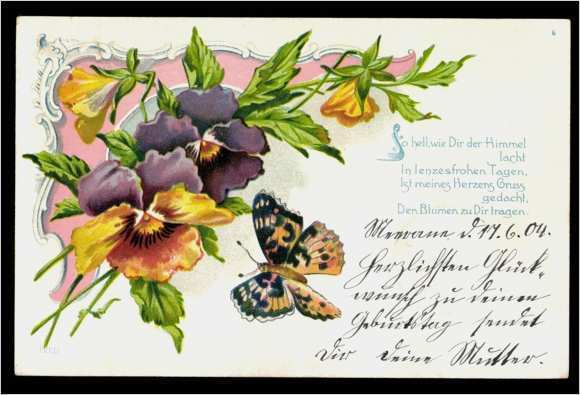 6
So hell, wie Dir der Himmel
lacht
In lenzesfrohen Tagen,
Ist meines Herzens Gruss
gedacht,
Den Blumen zu Dir tragen.
Meerane d. 17. 6. 04.
Herzlichsten Glück-
wunsch zu deinem
Geburtstag sendet
Dir deine Mutter.